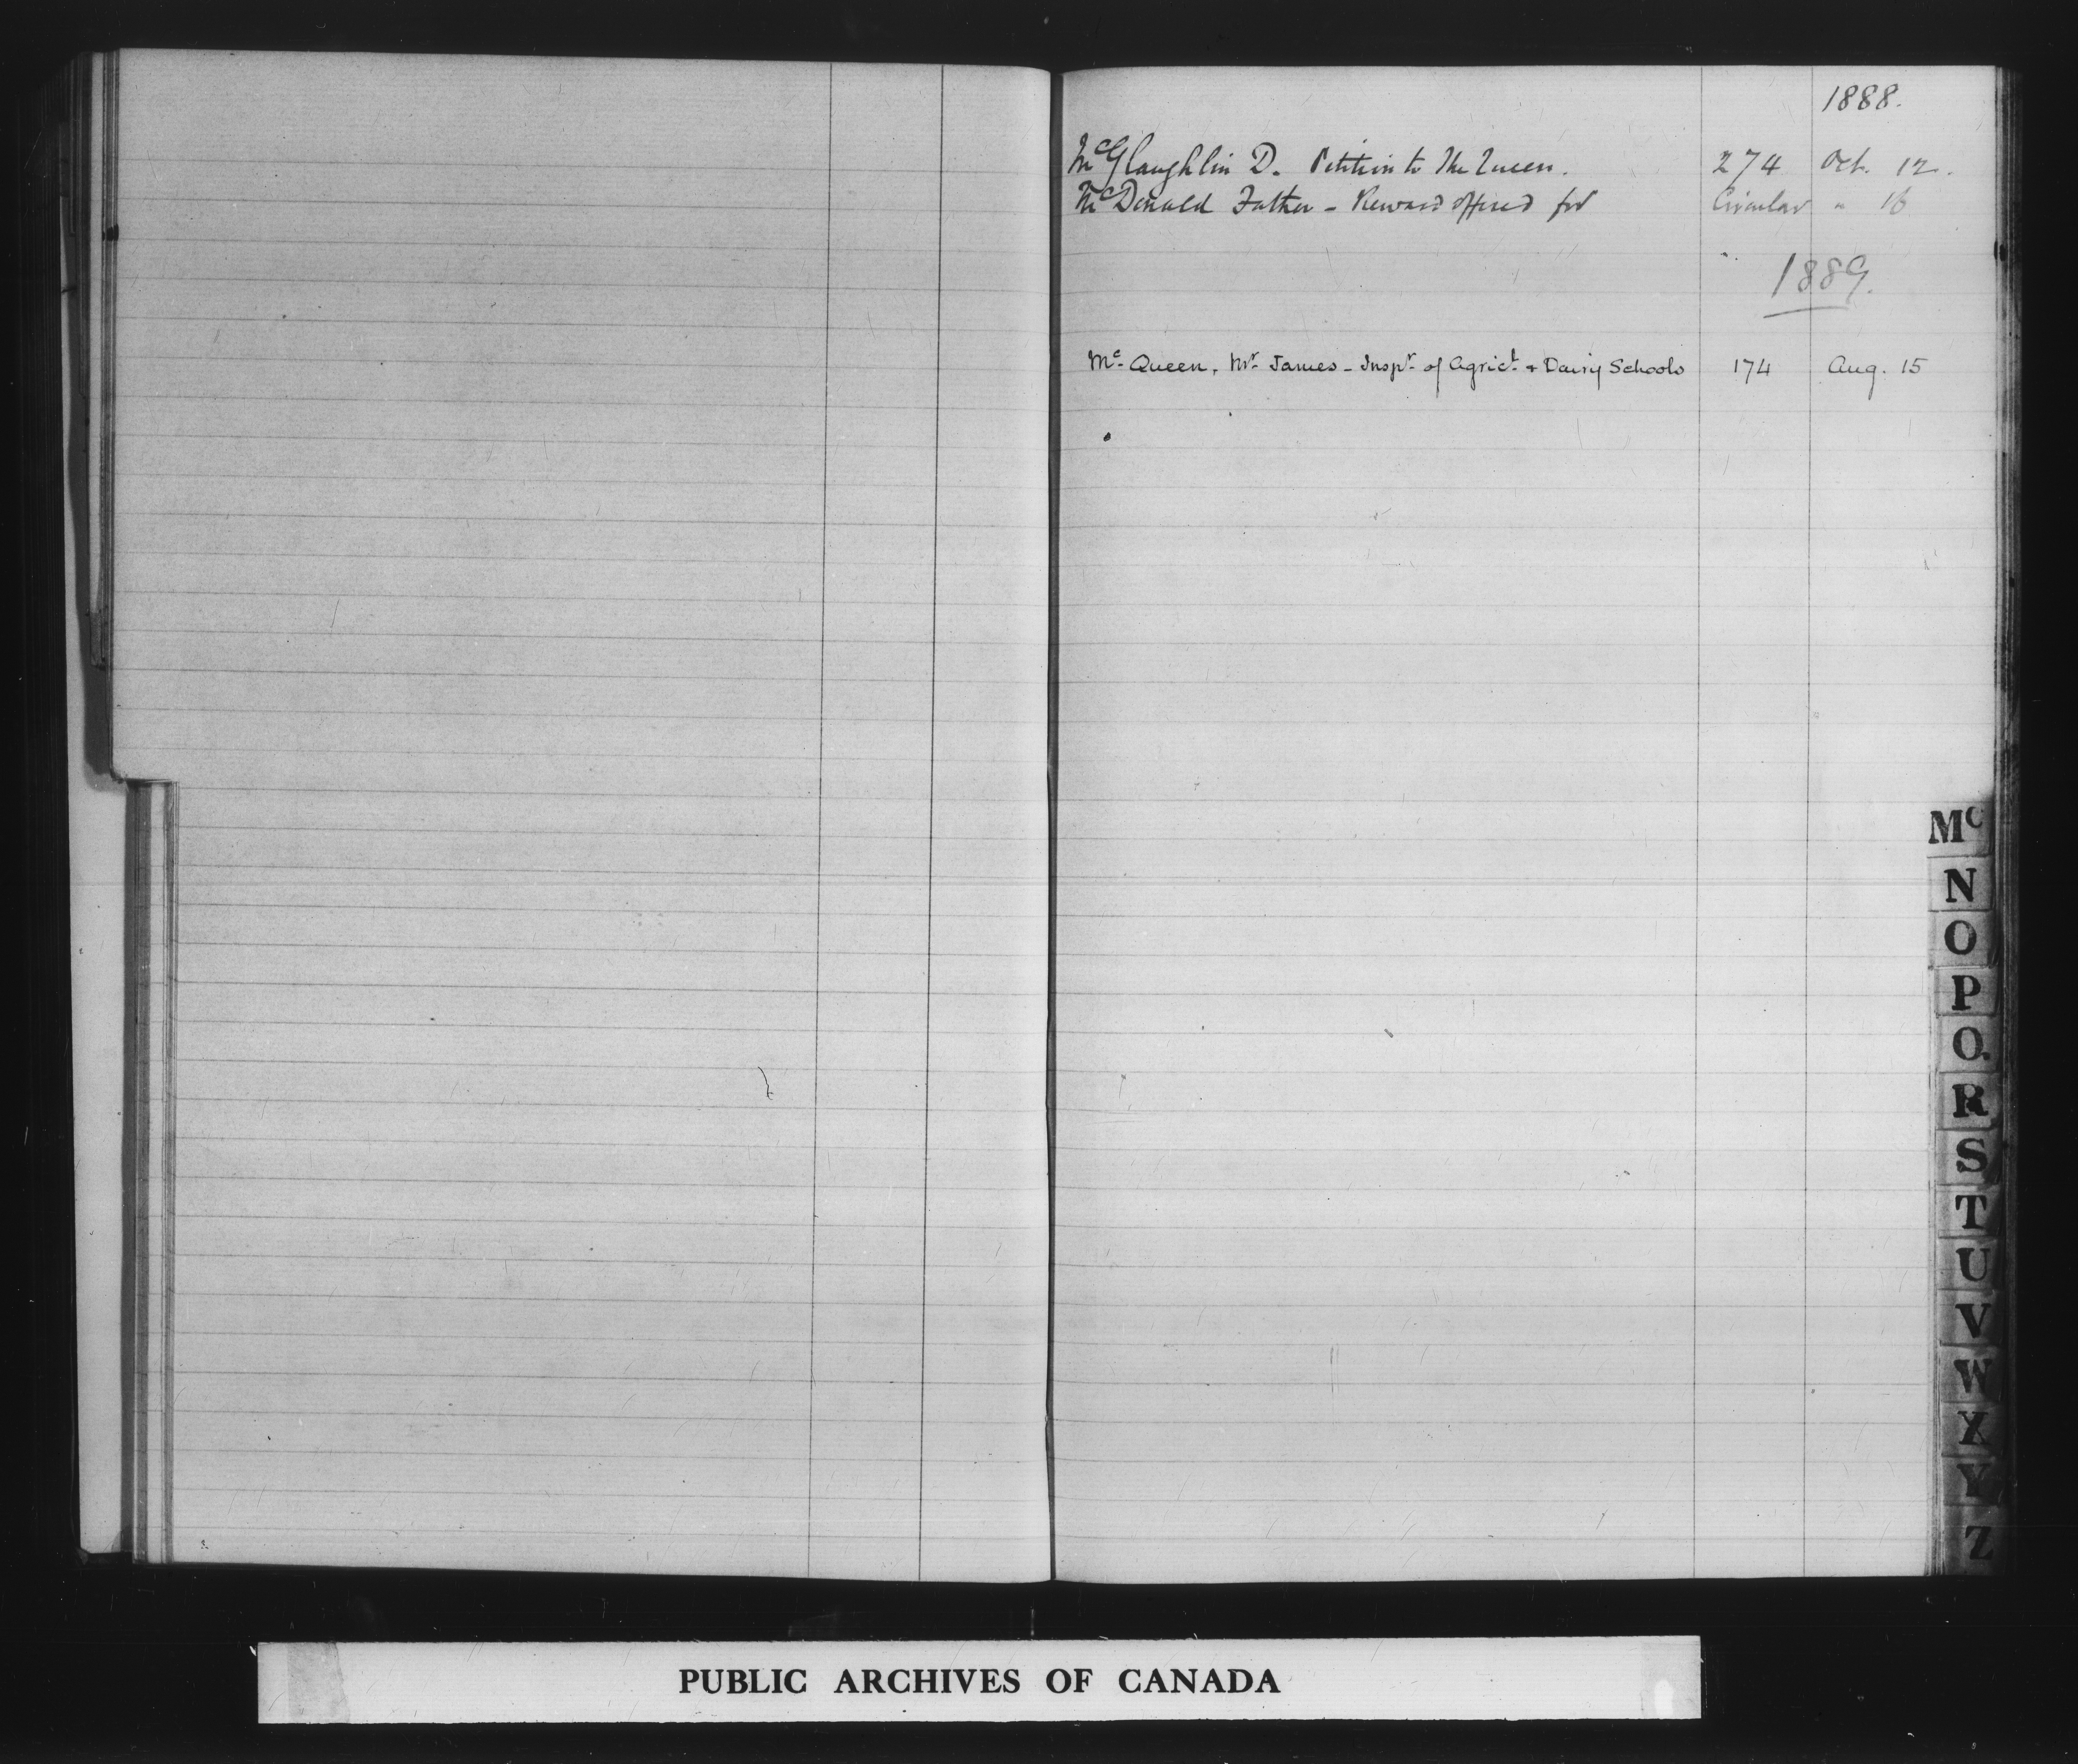 1888.
McGlaughlin D. Petition to The Queen. 274 Oct. 12.
McDonald Father - Reward offered for Circular " 16
1889.
Mc Queen, Mr James - Inspr of Agricl + Dairy Schools 174 Aug. 15
Mc
N
O
P
Q.
R
S
T
U
V
W
X
Y
Z
PUBLIC ARCHIVES OF CANADA